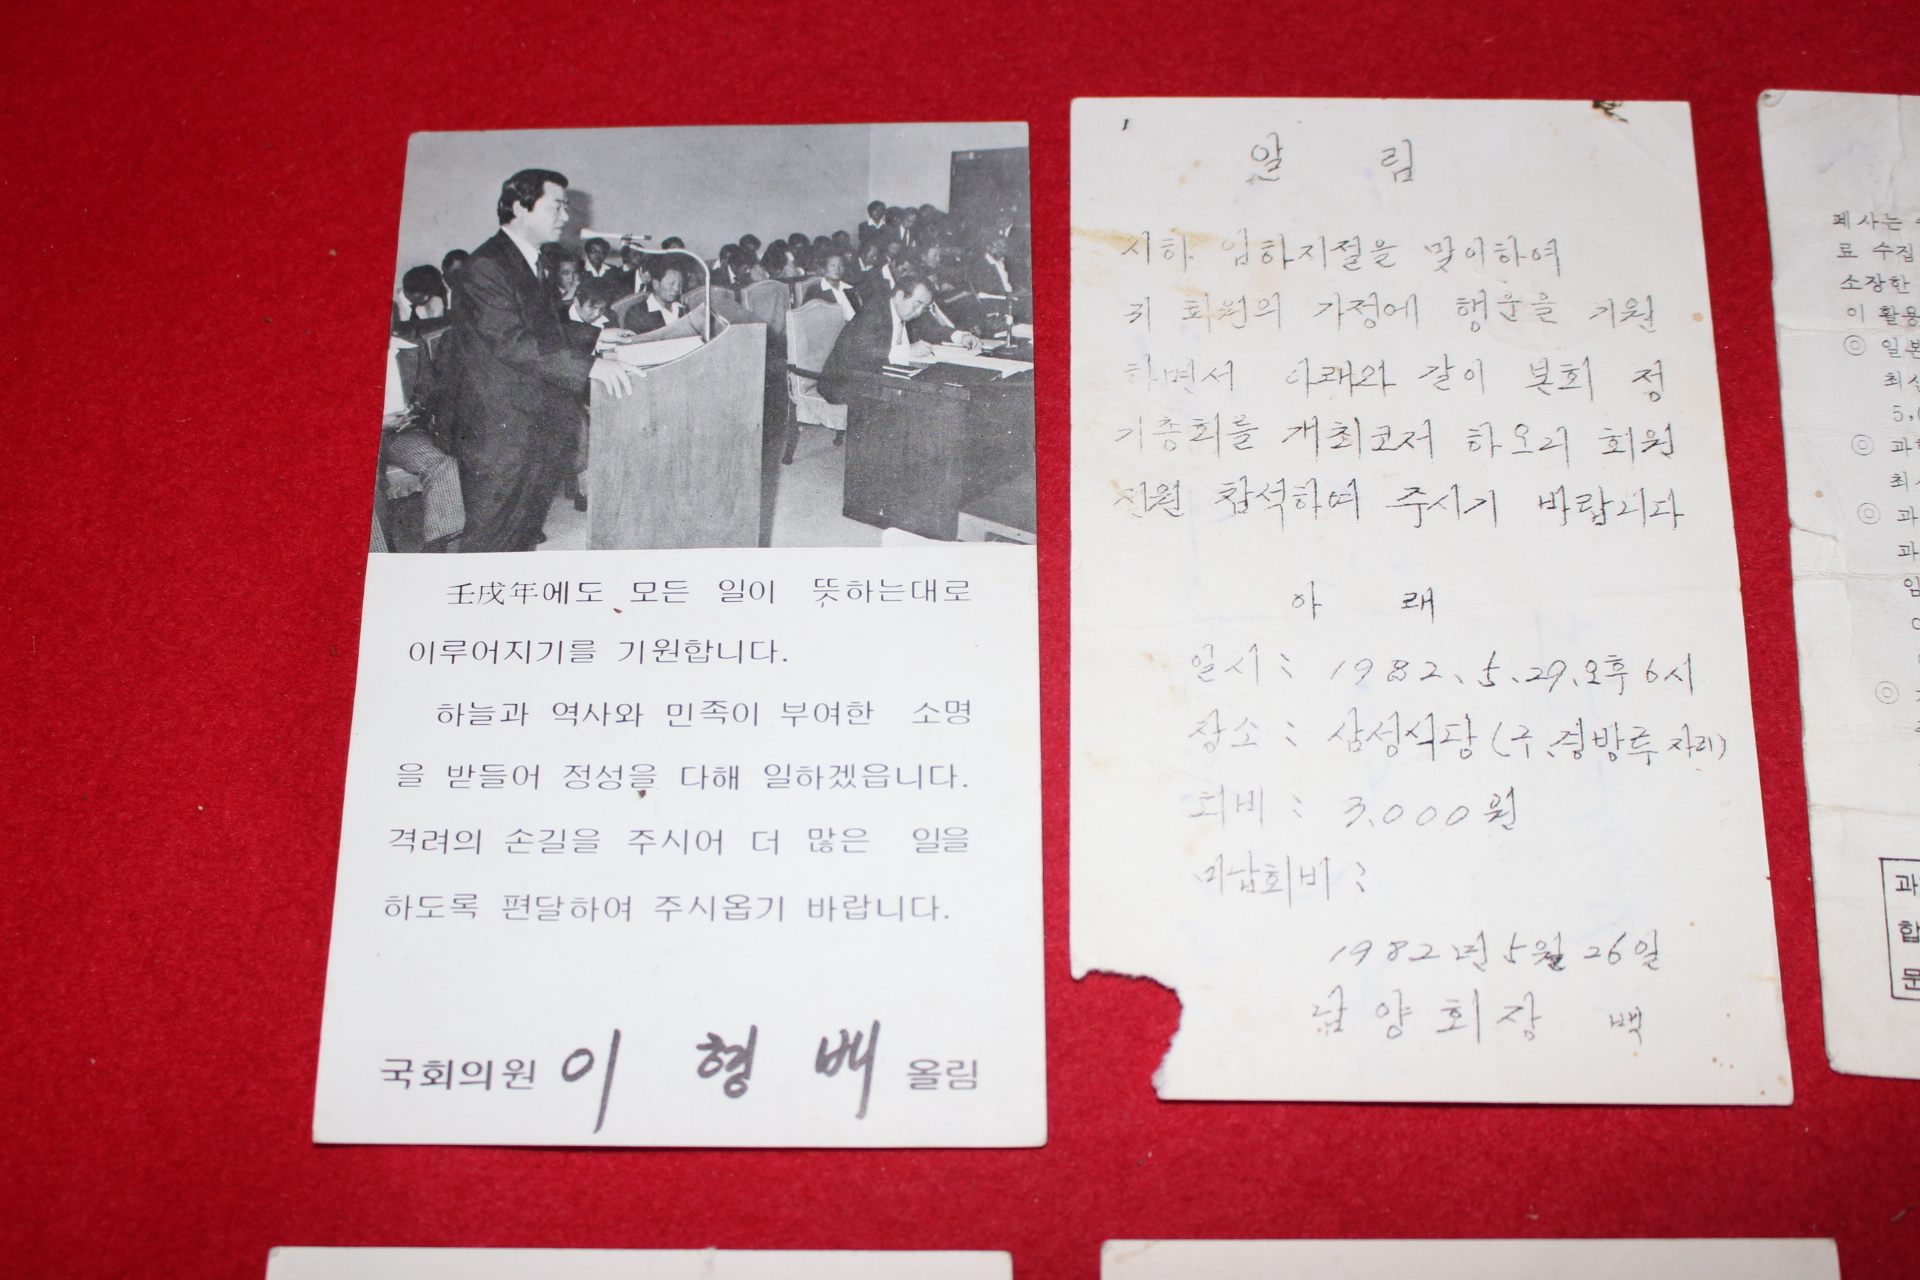 壬戌年에도 모든 일이 뜻하는대로
이루어지기를 기원합니다.
하늘과 역사와 민족이 부여한 소명
을 받들어 정성을 다해 일하겠읍니다.
격려의 손길을 주시어 더 많은 일을
하도록 편달하여 주시옵기 바랍니다.
국회의원 이 형 배 올림
알 림
시하 입하지절을 맞이하여
귀 회원의 가정에 행운을 기원
하면서 아래와 같이 본회 정
기총회를 개최코저 하오니 회원
전원 참석하여 주시기 바랍니다
아 래
일시 : 1982. 5. 29. 오후 6시
장소 : 삼성식당 (구. 경방루 자리)
회비 : 3,000원
미납회비 :
1982년 5월 26일
남양회장 백
폐사는
료 수집
소장한
이 활용
◎ 일본
최신
◎ 과학
◎ 과
과
◎
과
합
문